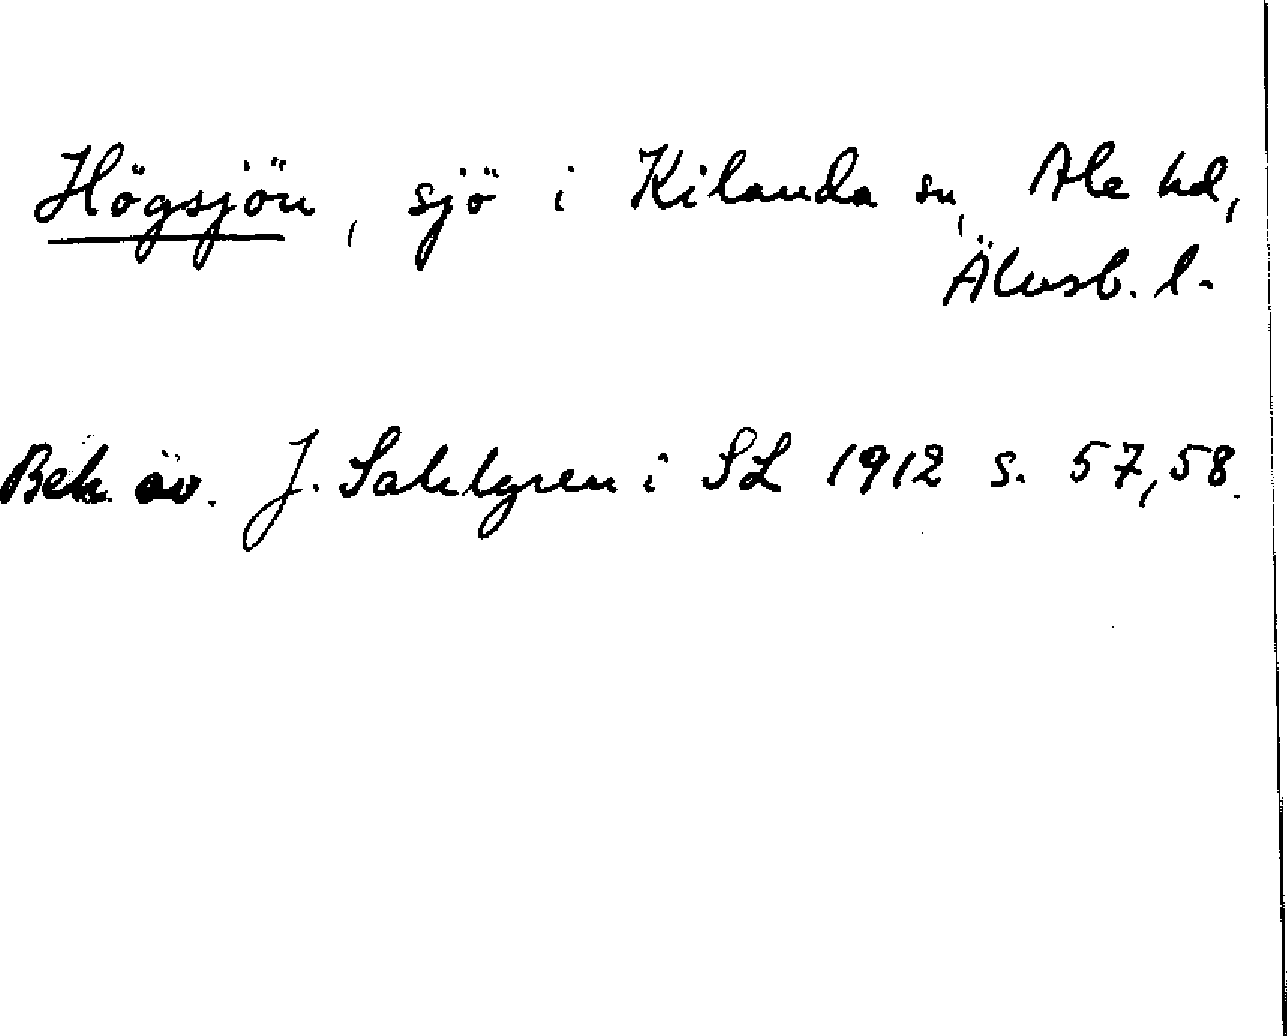 Högsjön, sjö i Kilanda sn, Ale hd,
Älvsb. l.
Beh. av. J. Sahlgren i SL 1912 s. 57, 58.